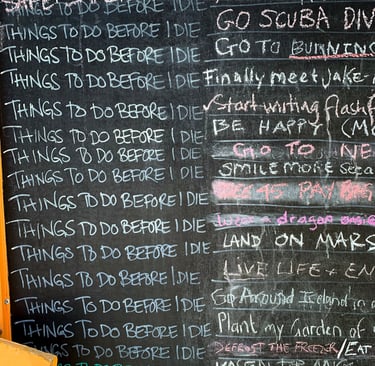 THINGS TO DO BEFORE I DIE
THINGS TO DO BEFORE I DIE
THINGS TO DO BEFORE I DIE
THINGS TO DO BEFORE I DIE
THINGS TO DO BEFORE I DIE
THINGS TO DO BEFORE I DIE
THINGS TO DO BEFORE I DIE
THINGS TO DO BEFORE I DIE
THINGS TO DO BEFORE I DIE
THINGS TO DO BEFORE I DIE
THINGS TO DO BEFORE I DIE
THINGS TO DO BEFORE I DIE
THINGS TO DO BEFORE I DIE
THINGS TO DO BEFORE I DIE
GO SCUBA DIV
GO TO BURNING
Finally meet Jake
Start writing flash
BE HAPPY (M
GO TO NE
SMILE MORE
PAY
a dragon
LAND ON MARS
LIVE LIFE + EN
Go Around Iceland in
Plant my Garden of
DEFROST THE FREEZER/EAT